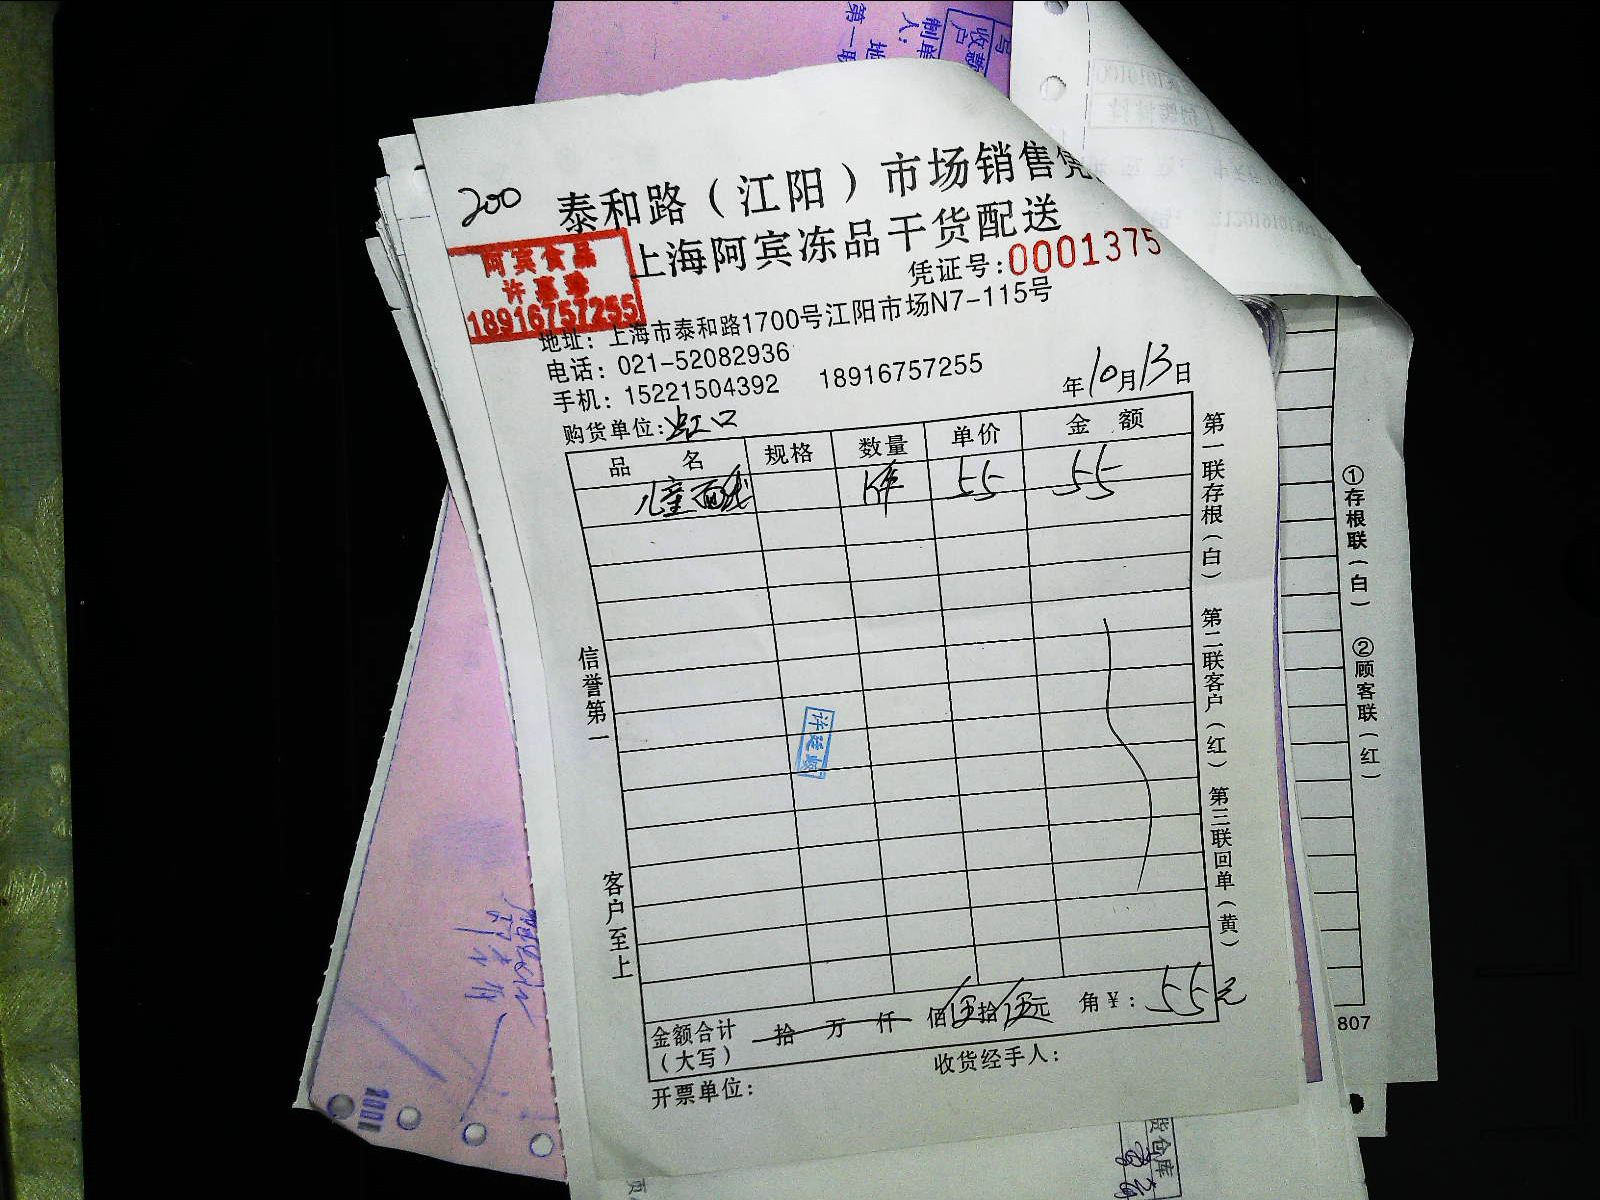 200
泰和路（江阳）市场销售凭
上海阿宾冻品干货配送
凭证号:0001375
阿宾食品
许惠珍
18916757255
地址：上海市泰和路1700号江阳市场N7-115号
电话：021-52082936
手机：15221504392 18916757255
年10月13日
购货单位:虹口
品名 规格 数量 单价 金额
儿童面线 1件 55 55
第一联存根（白） 第二联客户（红） 第三联回单（黄）
信誉第一
客户至上
金额合计（大写） 拾 万 仟 佰伍拾伍元 角¥：55元
开票单位：
收货经手人：
①存根联（白）
②顾客联（红）
807